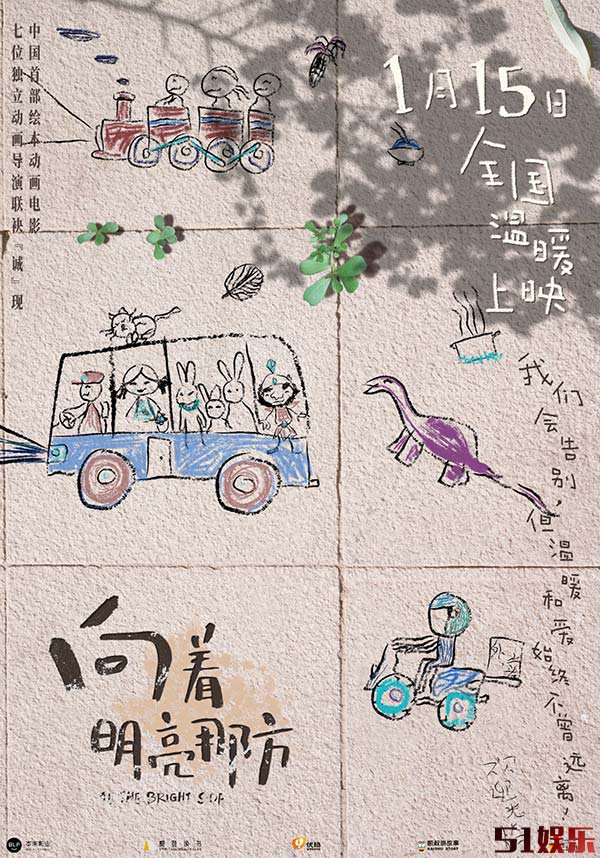 中国首部绘本动画电影
七位独立动画导演联袂『诚』现
1月15日
全国
温暖
上映
我们会告别，
但温暖和爱
始终不曾远离，
外卖
向着
明亮那方
TO THE BRIGHT SIDE
BLP
本来影业
凯叔讲故事
KAISHU STORY
51娱乐